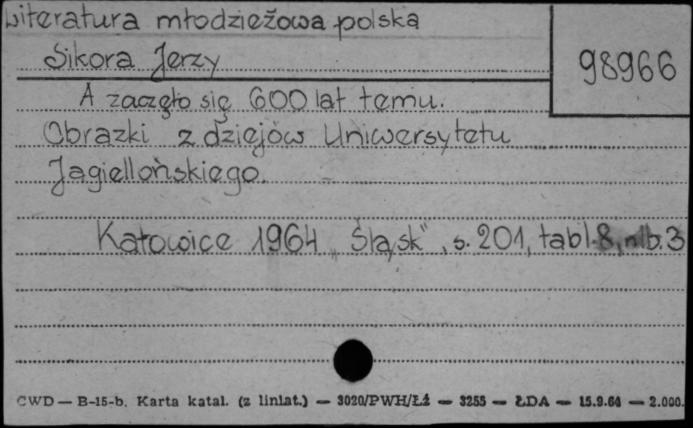 Literatura młodzieżowa polska
Sikora Jerzy
98966
A zaczęło się 600 lat temu.
Obrazki z dziejów Uniwersytetu
Jagiellońskiego.
Katowice 1964 „Śląsk", s. 201, tabl. 8, nlb. 3
CWD — B-15-b. Karta katal. (z liniat.) — 3020/PWH/Łź — 3255 — ŁDA — 15.9.64 — 2.000.